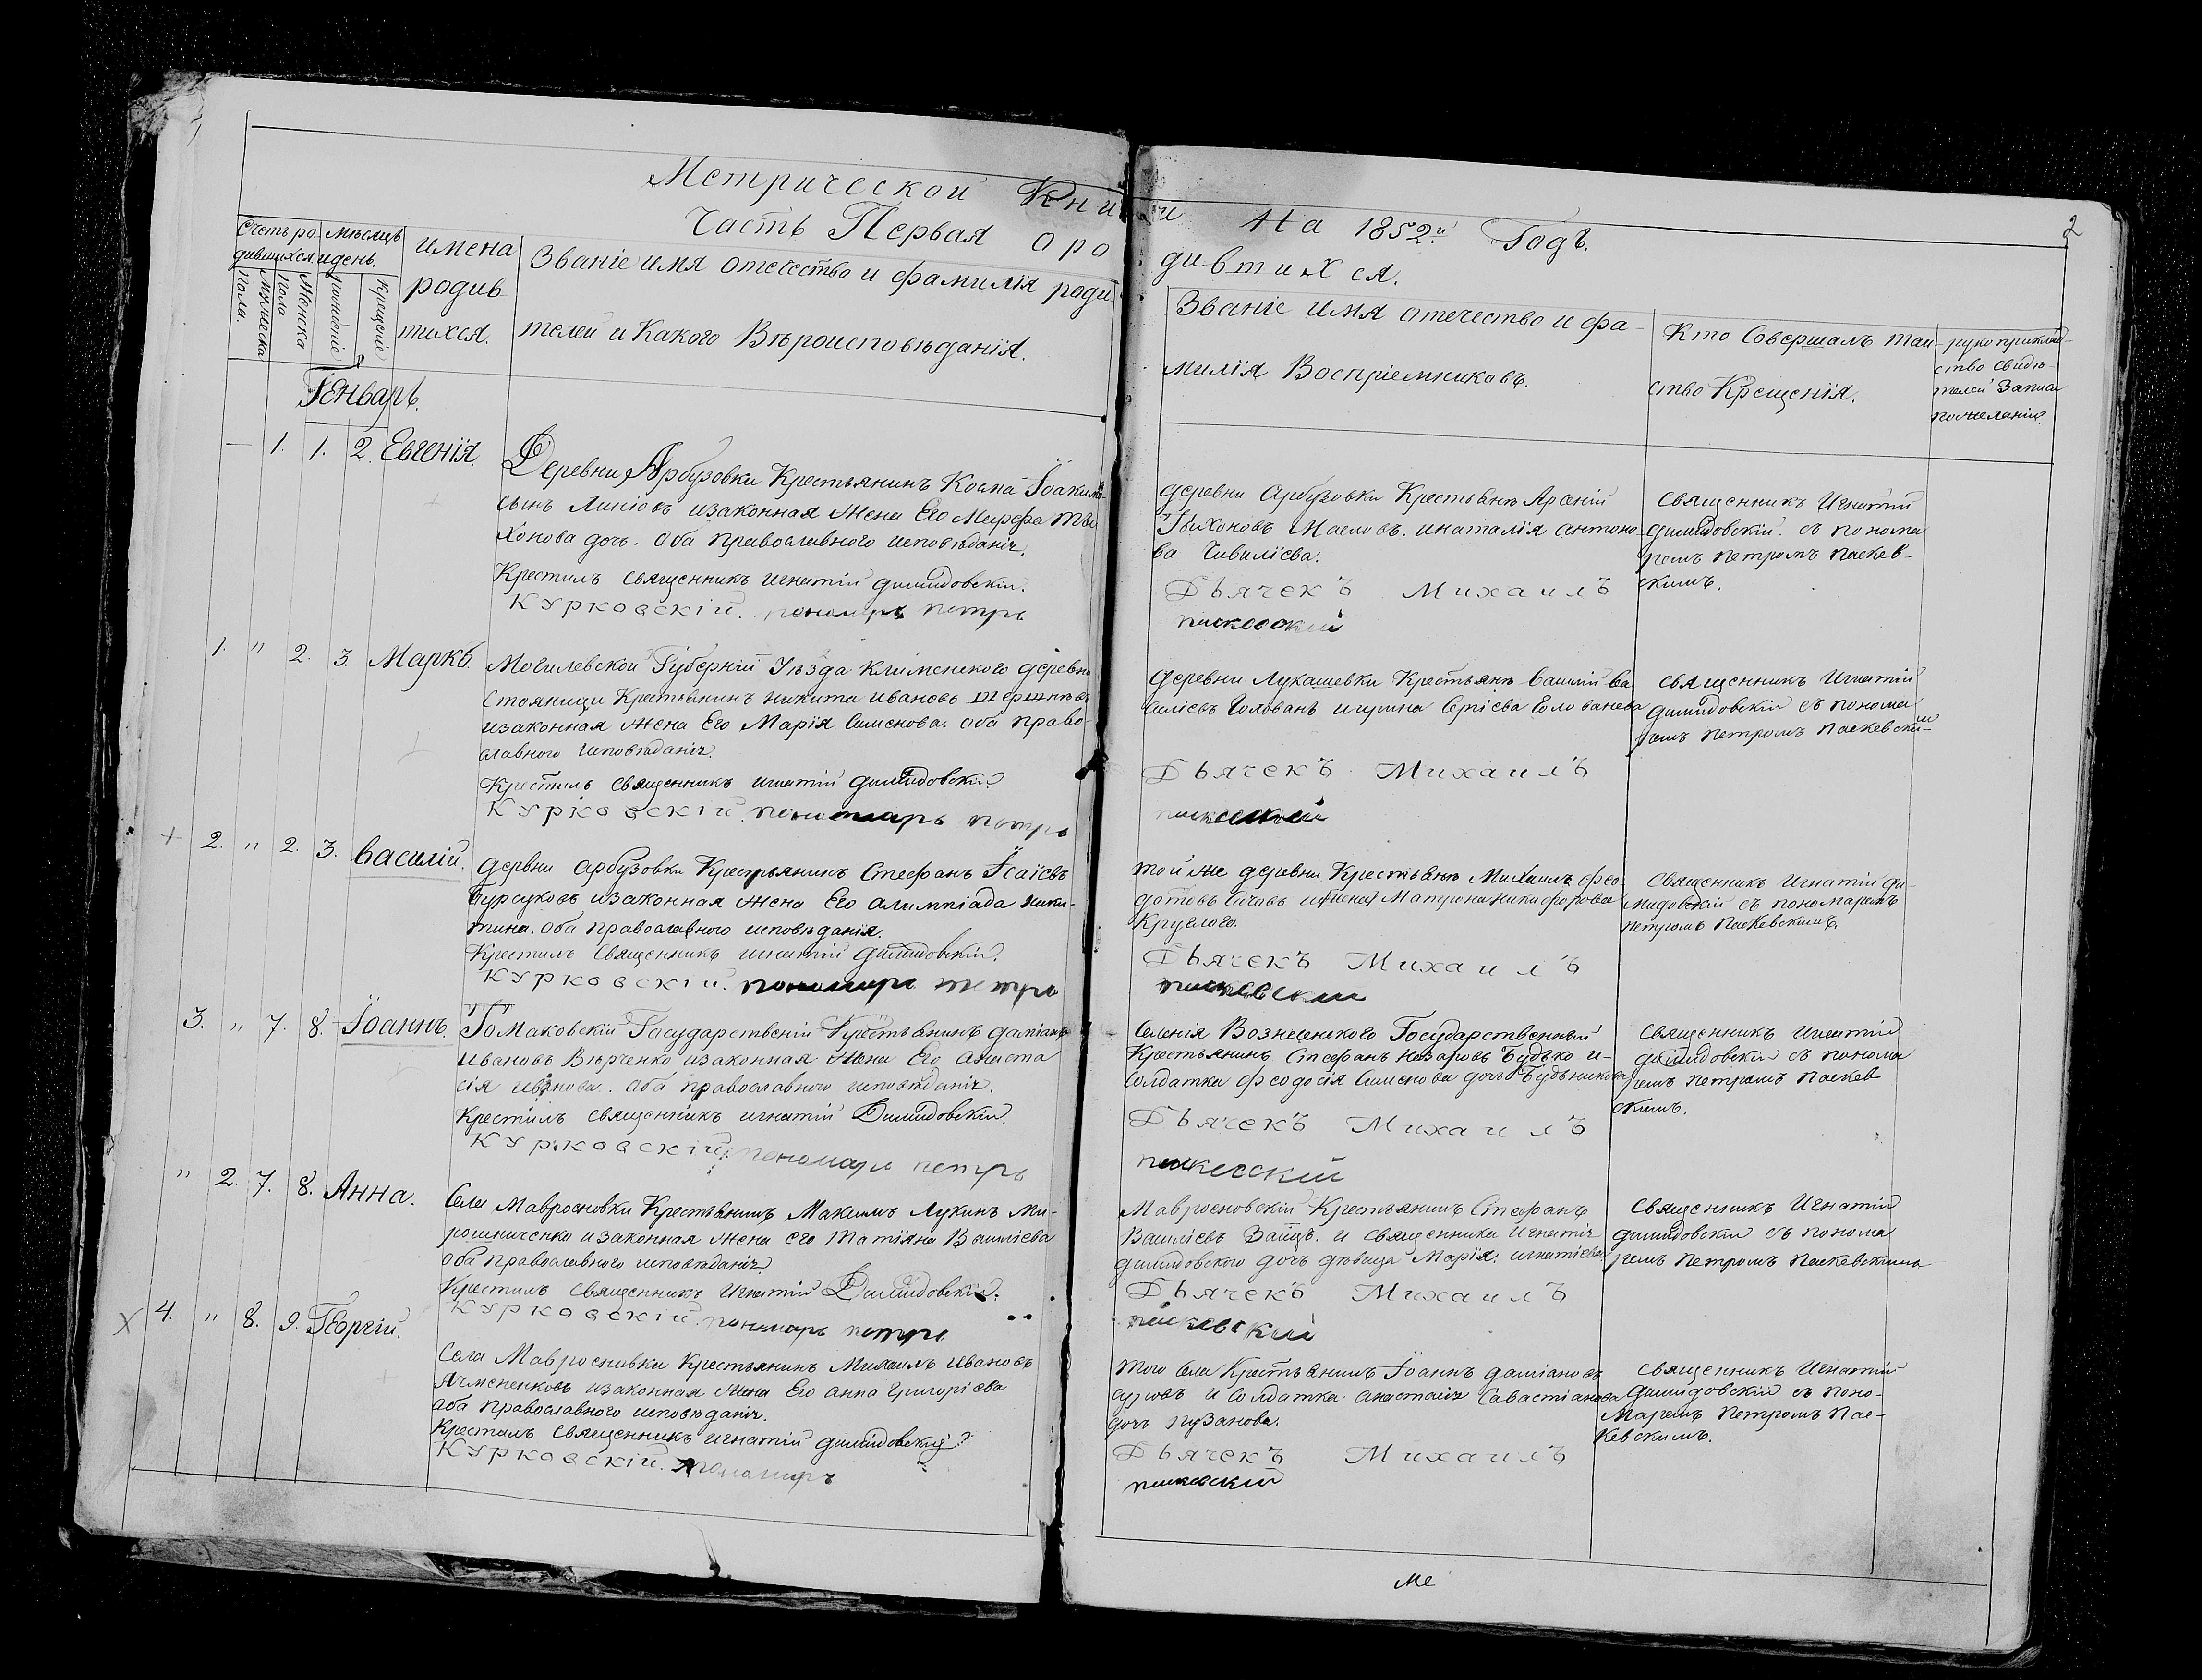 Метрической Книги На 1852й Годъ.
2
Часть Первая о родившихся.
Счетъ родившихся
Мужеска пола.
Женска пола
Мѣсяцъ и день.
Рожденіе
Крещеніе
имена родившихся.
Званіе имя отечество и фамилія роди
телей и Какого Вѣроисповѣданія.
Званіе имя отечество и фа-
милія Воспріемниковъ.
Кто Совершалъ таи-
ство Крещенія.
рукоприклад-
ство свидѣ-
телей Записи
по желанію.
Генварь.
— 1. 1. 2. Евгенія.
Деревни Арбузовки Крестьянинъ Косма Іоакимо
сынъ изаконная Жена Его Марфа Ти
хонова дочь. Оба православного исповѣданія.
Крестилъ священникъ игнатій димидовскій.
Курковскій. пономарь петръ
деревни Арбузовки Крестьянъ Арсеній
Тихоновъ Масловъ. инаталія антоно
ва
Дьячекъ Михаилъ
паскевскій
священникъ Игнатій
димидовскій. съ понома
ремъ петромъ паскев-
скимъ.
1. " 2. 3. Маркъ.
Могилевской Губерніи Уѣзда деревни
Крестьянинъ никита ивановъ
изаконная Жена Его Марія Семенова. Оба право-
славного исповѣданія.
Крестилъ священникъ игнатій димидовскій
Курковскій. пономарь петръ
деревни Лукашевки Крестьянъ Василій Ва
силіевъ Голованъ
Дьячекъ Михаилъ
паскевскій
священникъ Игнатій
димидовскій съ понома
ремъ петромъ Паскевским
+ 2. " 2. 3. Василій.
дервни арбузовки Крестьянинъ Стефанъ Исаіевъ
изаконная Жена Его алимпіада ники-
тина. Оба православного исповѣданія.
Крестилъ Священникъ игнатій димидовскій.
Курковскій. пономарь петръ
той же деревни Крестьянъ Михаилъ фео
дотовъ Матрона никифорова
Круглого.
Дьячекъ Михаилъ
паскевскій
Священникъ Игнатій ди-
мидовскій съ пономаремъ
петромъ Паскевскимъ.
3. " 7. 8. Іоаннъ.
Государственій Крестьянинъ даміанъ
Ивановъ изаконная Жена Его анаста
сія Иванова. Оба православного исповѣданія.
Крестилъ священникъ игнатій Димидовскій.
Курковскій. пономарь петръ
Селенія Вознесенского Государственный
Крестьянинъ Стефанъ Назаровъ Будько и-
Солдатка феодосія Семенова дочь Будьникова
Дьячекъ Михаилъ
паскевскій
священникъ Игнатій
димидовскій съ понома
ремъ петромъ паскев
скимъ.
" 2. 7. 8. Анна.
Села Мавросновки Крестьянинъ Максимъ Лукинъ Ми-
рошниченко изаконная Жена его Татіяна Василіева
оба Православного исповѣданія
Крестилъ Священникъ Игнатій Димидовскій.
Курковскій. пономарь петръ
Мавросновскій Крестьянинъ Стефанъ
Василіевъ Заицъ. и священника Игнатія
димидовского дочь дѣвица Марія. игнатіева
Дьячекъ Михаилъ
паскевскій
священникъ Игнатій
димидовскій съ понома
ремъ петромъ паскевскимъ
X 4. " 8. 9. Георгій.
Села Крестьянинъ Михаилъ Ивановъ
Ячмененковъ изаконная Жена Его анна Григоріева
оба православного исповѣданія.
Крестилъ священникъ игнатій димидовскій
Курковскій. пономарь
того Села Крестьянинъ Іоаннъ даміановъ
и Солдатка анастасія Савастіанова
дочь пузанова.
Дьячекъ Михаилъ
паскевскій
священникъ Игнатій
димидовскій съ поно-
маремъ петромъ Пас-
кевскимъ.
Ме